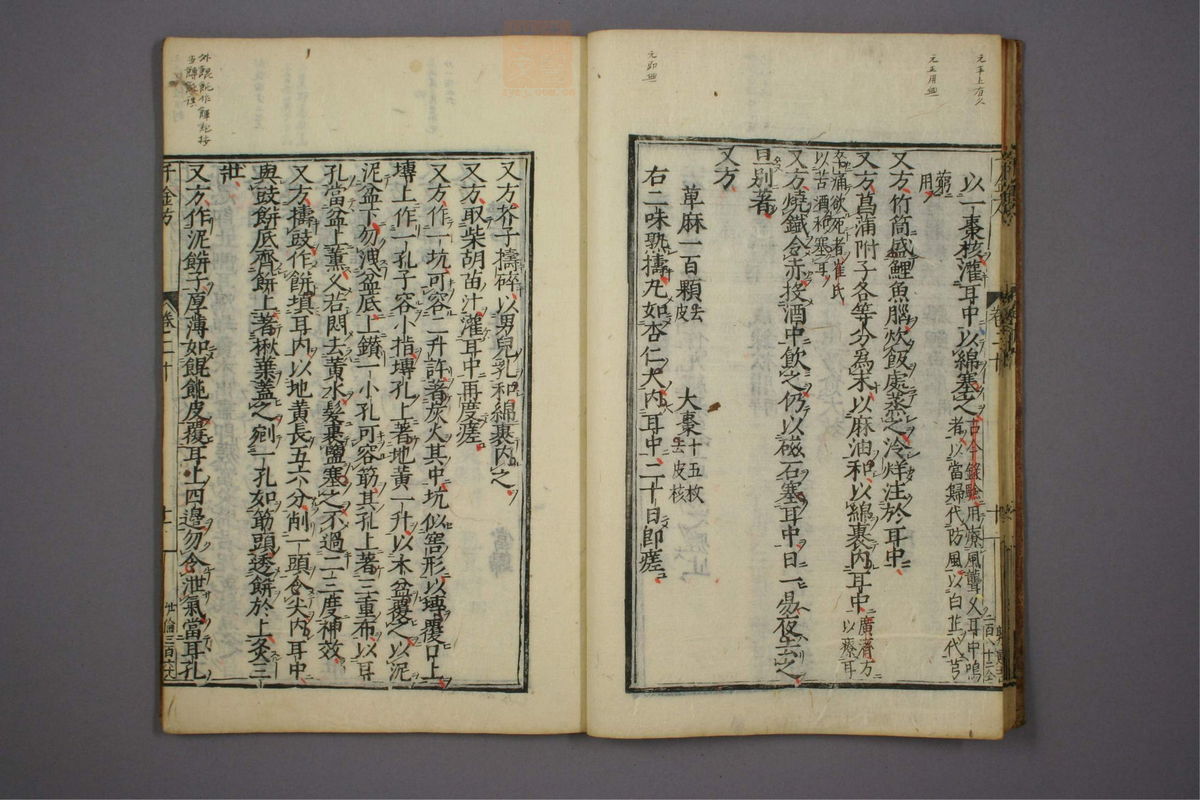 以一棗核灌耳中以綿塞之古今錄驗用療風聾又耳中鳴
者以當歸代防風以白芷代芎
窮
用
又方竹筒盛鯉魚腦炊飯處蒸之冷烊注於耳中
又方菖蒲附子各等分為末以麻油和以綿裹內耳中廣濟方
以療耳
卒痛欲死者崔氏
以苦酒和塞耳
又方燒鐵令赤投酒中飲之仍以磁石塞耳中日一易夜去之
旦別著
又方
萆麻一百顆去皮 大棗十五枚去皮核
右二味熟擣丸如杏仁大內耳中二十日即瘥
又方芥子擣碎以男兒乳和綿裹內之
又方取柴胡苗汁灌耳中再度瘥
又方作一坑可容二升許著炭火其中坑似窖形以塼覆口上
塼上作一孔子容小指塼孔上著地黃一升以木盆覆之以泥
泥盆下勿洩盆底上鑽一小孔可容筯其孔上著三重布以耳
孔當盆上薰久若悶去黃水髮裹鹽塞之不過二三度神效
又方擣豉作餅填耳內以地黃長五六分削一頭令尖內耳中
與豉餅底齊餅上著楸葉蓋之剜一孔如筯頭透餅於上灸三
壯
又方作泥餅子厚薄如餛飩皮覆耳上四邊勿令泄氣當耳孔
千金方
卷二十